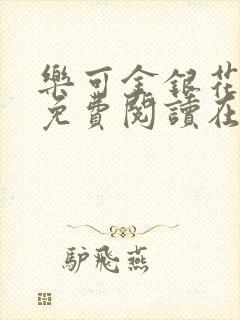 樂可金銀花
免費閱讀在
驴飛燕